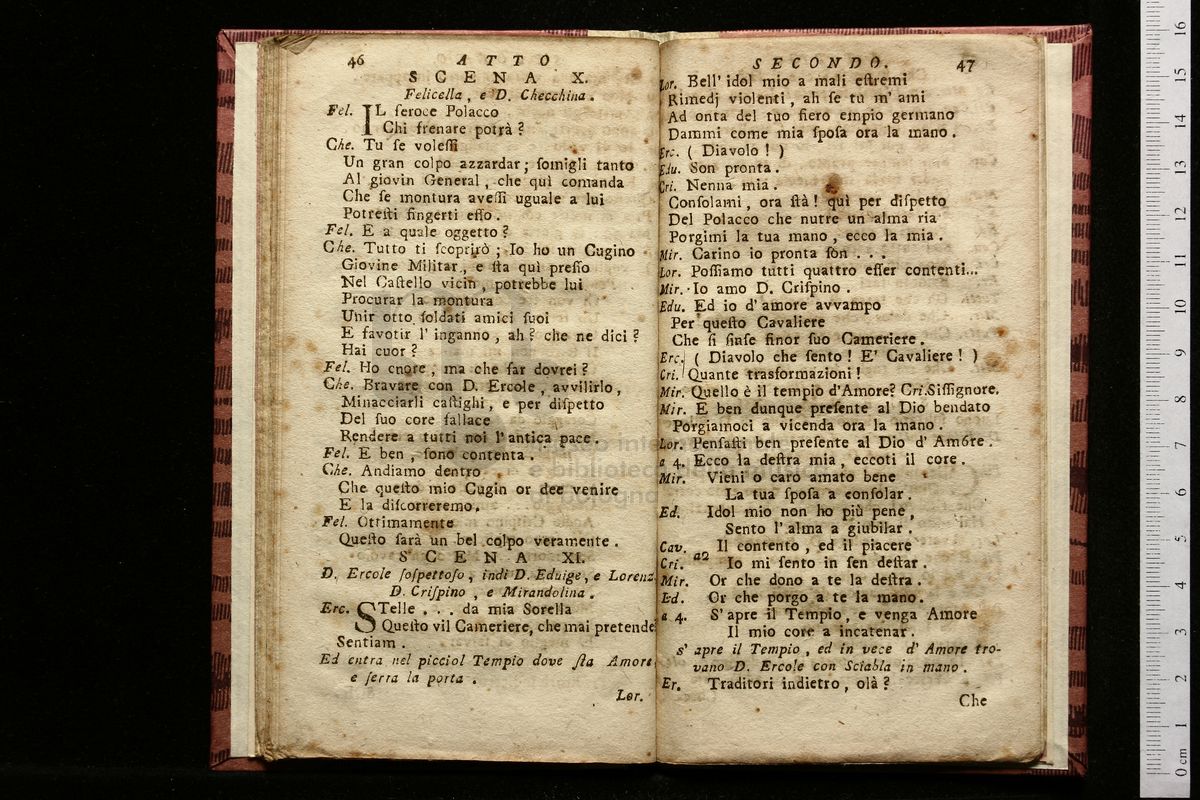 46
A T T O
S C E N A X.
Felicella, e D. Checchina.
Fel. IL feroce Polacco
Chi frenare potrà?
Che. Tu ſe voleſſi
Un gran colpo azzardar; ſomigli tanto
Al giovin General, che quì comanda
Che ſe montura aveſſi uguale a lui
Potreſti fingerti eſſo.
Fel. E a quale oggetto?
Che. Tutto ti ſcoprirò; Io ho un Cugino
Giovine Militar, e ſta quì preſſo
Nel Caſtello vicin, potrebbe lui
Procurar la montura
Unir otto ſoldati amici ſuoi
E favotir l' inganno, ah? che ne dici?
Hai cuor?
Fel. Ho cnore, ma che far dovrei?
Che. Bravare con D. Ercole, avvilirlo,
Minacciarli caſtighi, e per diſpetto
Del ſuo core fallace
Rendere a tutti noi l' antica pace.
Fel. E ben, ſono contenta.
Che. Andiamo dentro
Che queſto mio Cugin or dee venire
E la diſcorreremo.
Fel. Ottimamente
Queſto ſarà un bel colpo veramente.
S C E N A XI.
D. Ercole ſoſpettoſo, indi D. Eduige, e Lorenz.
D. Criſpino, e Mirandolina.
Erc. STelle . . . da mia Sorella
Queſto vil Cameriere, che mai pretende
Sentiam.
Ed entra nel picciol Tempio dove ſta Amore
e ſerra la porta.
Lor.
SECONDO. 47
Lor. Bell' idol mio a mali eſtremi
Rimedj violenti, ah ſe tu m' ami
Ad onta del tuo fiero empio germano
Dammi come mia ſpoſa ora la mano.
Erc. ( Diavolo! )
Edu. Son pronta.
Cri. Nenna mia.
Conſolami, ora ſtà! quì per diſpetto
Del Polacco che nutre un alma ria
Porgimi la tua mano, ecco la mia.
Mir. Carino io pronta ſon . . .
Lor. Poſſiamo tutti quattro eſſer contenti...
Mir. Io amo D. Criſpino.
Edu. Ed io d' amore avvampo
Per queſto Cavaliere
Che ſi finſe finor ſuo Cameriere.
Erc. ( Diavolo che ſento! E' Cavaliere! )
Cri. Quante trasformazioni!
Mir. Quello è il tempio d'Amore? Cri. Siſſignore.
Mir. E ben dunque preſente al Dio bendato
Porgiamoci a vicenda ora la mano.
Lor. Penſaſti ben preſente al Dio d' Amóre.
a 4. Ecco la deſtra mia, eccoti il core.
Mir. Vieni o caro amato bene
La tua ſpoſa a conſolar.
Ed. Idol mio non ho più pene,
Sento l' alma a giubilar.
Cav. Il contento, ed il piacere
Cri. a2 Io mi ſento in ſen deſtar.
Mir. Or che dono a te la deſtra.
Ed. Or che porgo a te la mano.
a 4. S' apre il Tempio, e venga Amore
Il mio core a incatenar.
s' apre il Tempio, ed in vece d' Amore tro-
vano D. Ercole con Sciabla in mano.
Er. Traditori indietro, olà?
Che